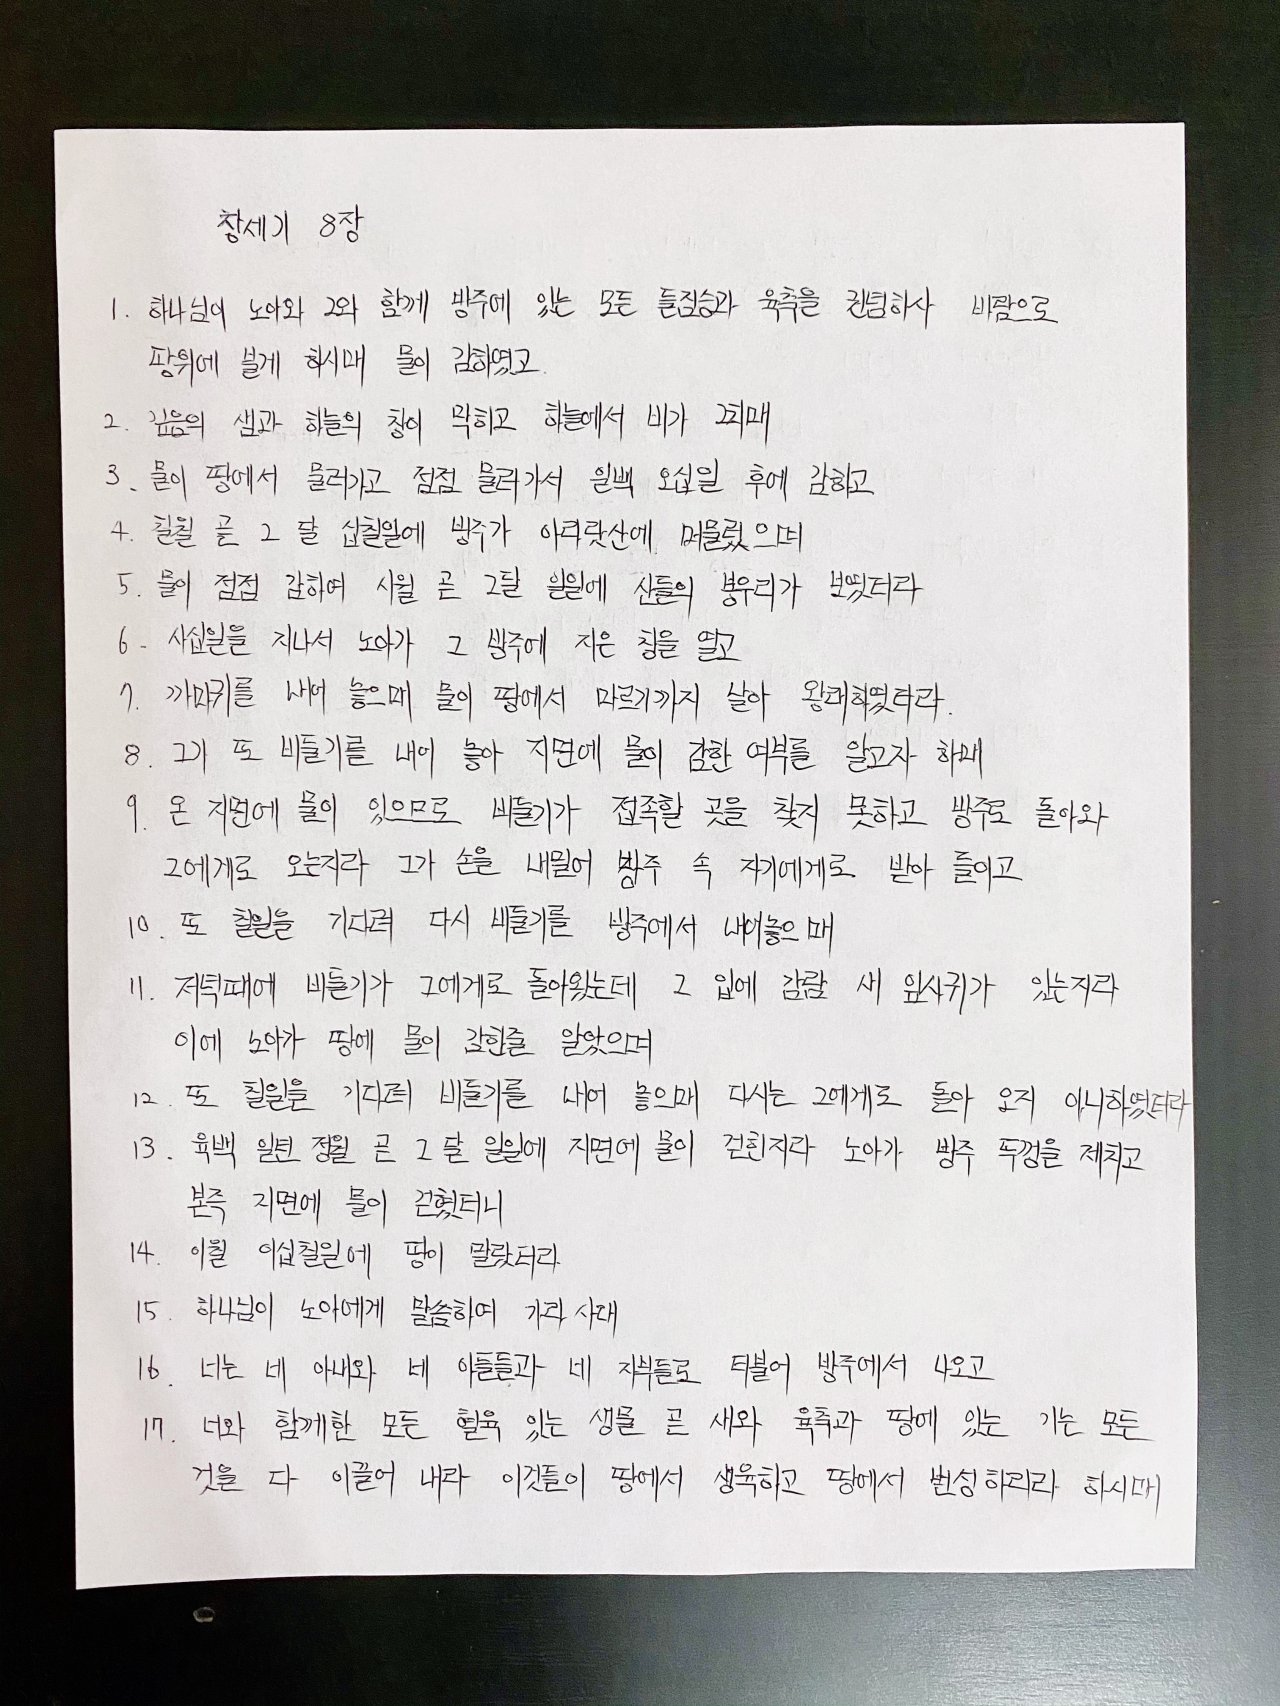 창세기 8장
1. 하나님이 노아와 그와 함께 방주에 있는 모든 들짐승과 육축을 권념하사 바람으로
땅위에 불게 하시매 물이 감하였고
2. 깊음의 샘과 하늘의 창이 막히고 하늘에서 비가 그치매
3. 물이 땅에서 물러가고 점점 물러가서 일백 오십일 후에 감하고
4. 칠월 곧 그 달 십칠일에 방주가 아라랏산에 머물렀으며
5. 물이 점점 감하여 시월 곧 그달 일일에 산들의 봉우리가 보였더라
6. 사십일을 지나서 노아가 그 방주에 지은 창을 열고
7. 까마귀를 내어 놓으매 물이 땅에서 마르기까지 날아 왕래하였더라.
8. 그가 또 비둘기를 내어 놓아 지면에 물이 감한 여부를 알고자 하매
9. 온 지면에 물이 있으므로 비둘기가 접족할 곳을 찾지 못하고 방주로 돌아와
그에게로 오는지라 그가 손을 내밀어 방주 속 자기에게로 받아 들이고
10. 또 칠일을 기다려 다시 비둘기를 방주에서 내어놓으매
11. 저녁때에 비둘기가 그에게로 돌아왔는데 그 입에 감람 새 잎사귀가 있는지라
이에 노아가 땅에 물이 감한줄 알았으며
12. 또 칠일을 기다려 비둘기를 내어 놓으매 다시는 그에게로 돌아 오지 아니하였더라
13. 육백 일년 정월 곧 그 달 일일에 지면에 물이 걷힌지라 노아가 방주 뚜껑을 제치고
본즉 지면에 물이 걷혔더니
14. 이월 이십칠일에 땅이 말랐더라
15. 하나님이 노아에게 말씀하여 가라사대
16. 너는 네 아내와 네 아들들과 네 자부들로 더불어 방주에서 나오고
17. 너와 함께한 모든 혈육 있는 생물 곧 새와 육축과 땅에 있는 기는 모든
것을 다 이끌어 내라 이것들이 땅에서 생육하고 땅에서 번성하리라 하시매